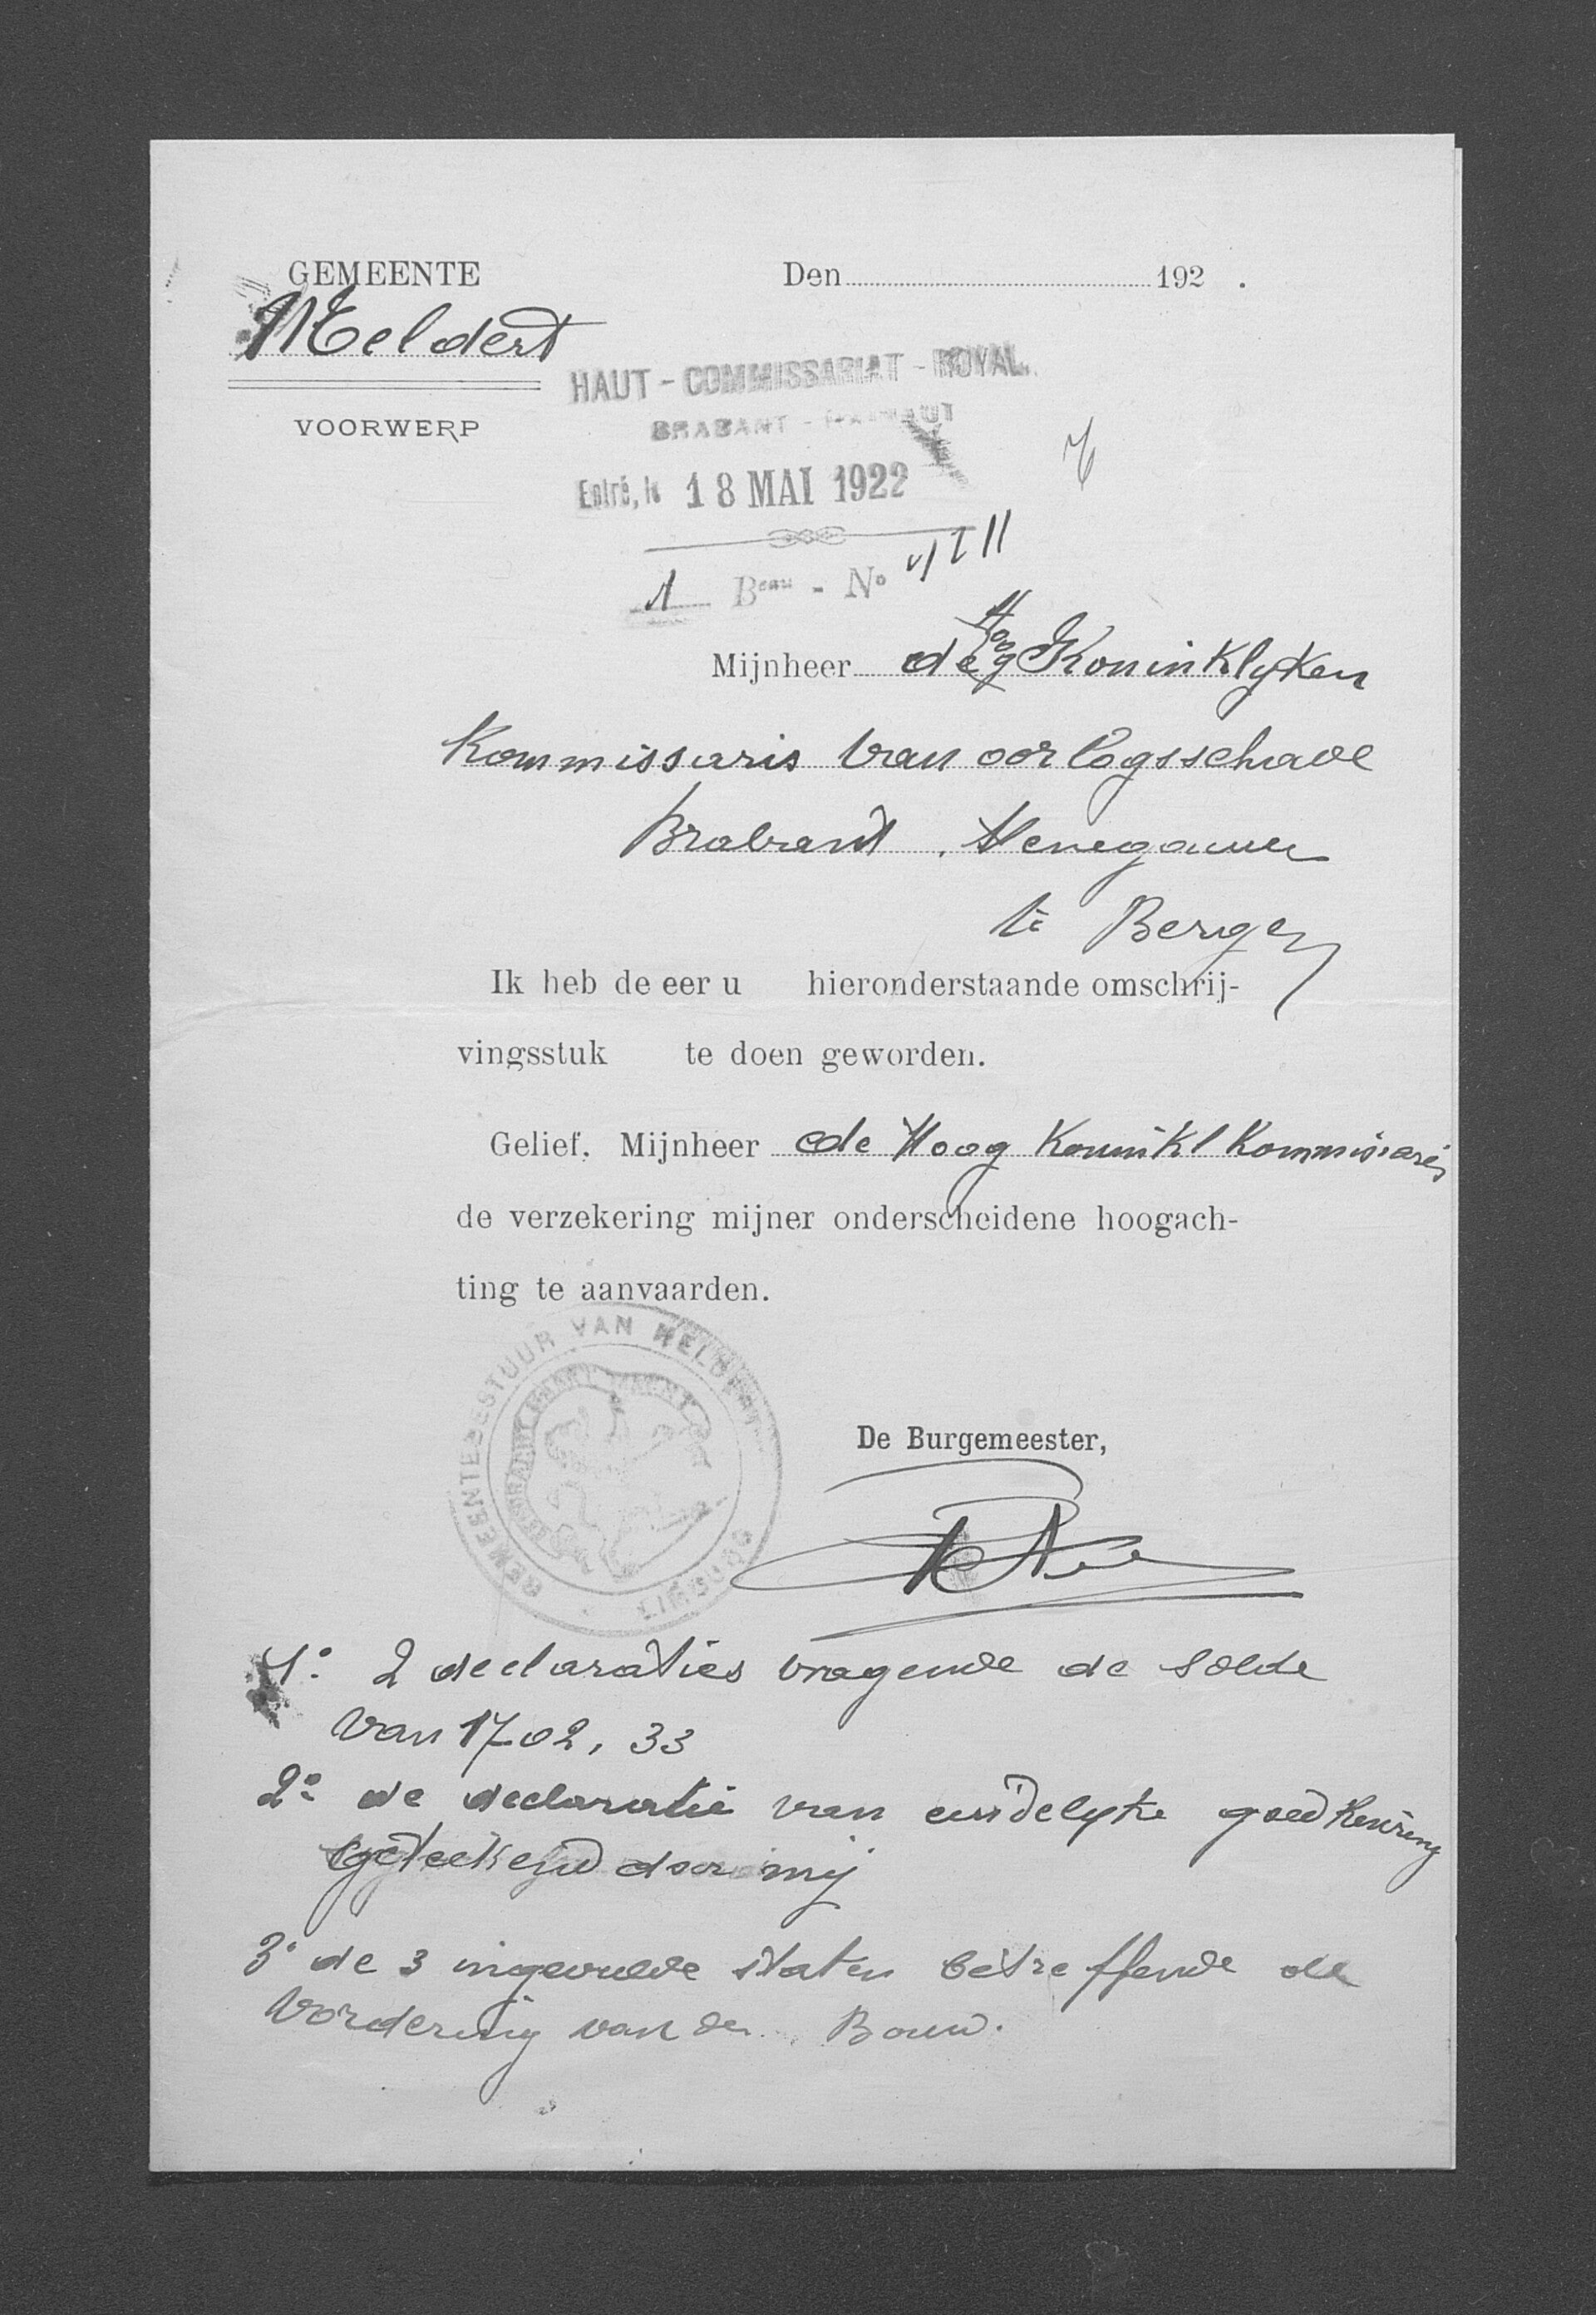 GEMEENTE
Den 192 .
Meldert
HAUT - COMMISSARIAT - ROYAL.
BRABANT - HAINAUT
VOORWERP
Entré, le 18 MAI 1922
1 Beau - No
Mijnheer de Hoog Koninklyken
Kommissaris van oorlogsschade
Brabant. Henegouwen
te Bergen
Ik heb de eer u hieronderstaande omschrij-
vingsstuk te doen geworden.
Gelief, Mijnheer de Hoog Koninkl Kommissaris
de verzekering mijner onderscheidene hoogach-
ting te aanvaarden.
GEMEENTEBESTUUR VAN MELDERT
LIMBURG
De Burgemeester,
1° 2 declaraties vragende de solde
van 1702, 33
2° de declaratie van eindelyke goedkeuring
geteekend door mij
3° de 3 ingevulde staten betreffende de
Vordering van den Bouw.